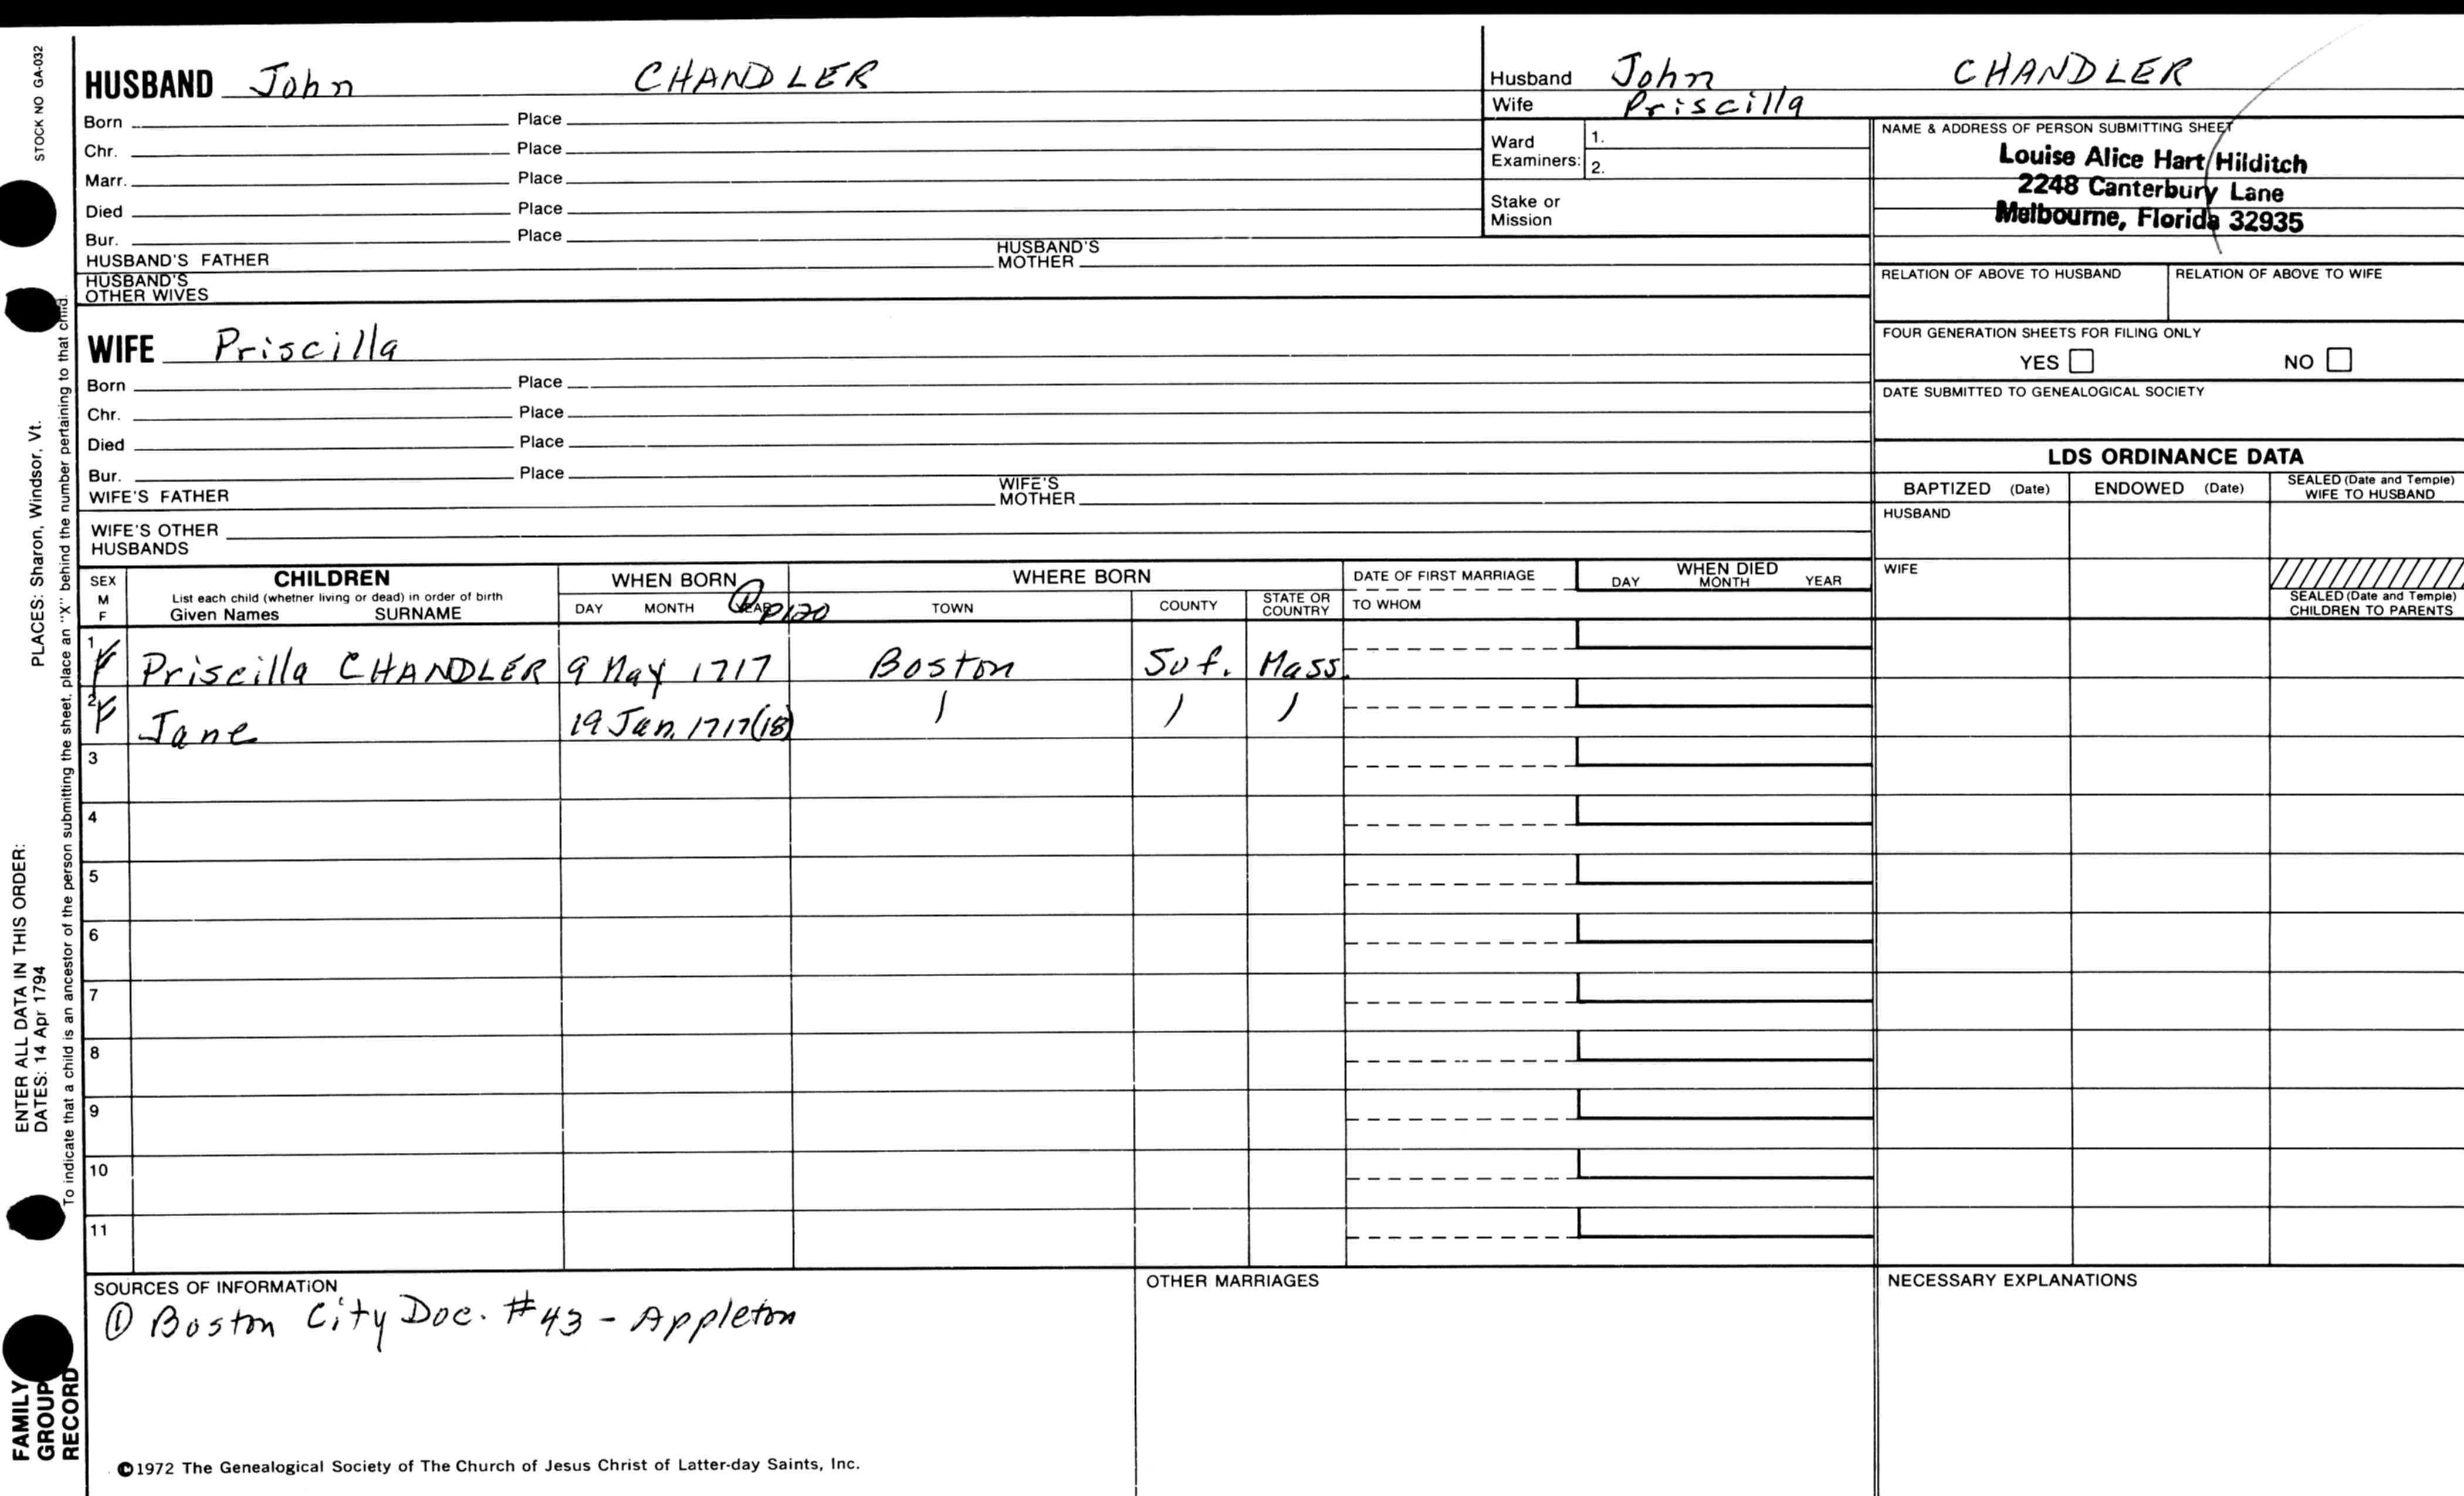 STOCK NO GA-032
PLACES: Sharon, Windsor, Vt.
ENTER ALL DATA IN THIS ORDER:
DATES: 14 Apr 1794
To indicate that a child is an ancestor of the person submitting the sheet, place an "X" behind the number pertaining to that child.
FAMILY
GROUP
RECORD
HUSBAND John CHANDLER
Born Place
Chr. Place
Marr. Place
Died Place
Bur. Place
HUSBAND'S FATHER HUSBAND'S MOTHER
HUSBAND'S
OTHER WIVES
WIFE Priscilla
Born Place
Chr. Place
Died Place
Bur. Place
WIFE'S FATHER WIFE'S MOTHER
WIFE'S OTHER
HUSBANDS
Husband John CHANDLER
Wife Priscilla
Ward
Examiners:
1.
2.
Stake or
Mission
NAME & ADDRESS OF PERSON SUBMITTING SHEET
Louise Alice Hart Hilditch
2248 Canterbury Lane
Melbourne, Florida 32935
RELATION OF ABOVE TO HUSBAND RELATION OF ABOVE TO WIFE
FOUR GENERATION SHEETS FOR FILING ONLY
YES NO
DATE SUBMITTED TO GENEALOGICAL SOCIETY
LDS ORDINANCE DATA
BAPTIZED (Date) ENDOWED (Date) SEALED (Date and Temple) WIFE TO HUSBAND
HUSBAND
WIFE
SEALED (Date and Temple)
CHILDREN TO PARENTS
SEX
M
F
CHILDREN
List each child (whether living or dead) in order of birth
Given Names SURNAME
WHEN BORN
DAY MONTH YEAR
① p120
WHERE BORN
TOWN COUNTY STATE OR COUNTRY
DATE OF FIRST MARRIAGE
TO WHOM
WHEN DIED
DAY MONTH YEAR
1 F Priscilla CHANDLER 9 May 1717 Boston Suf. Mass.
2 F Jane 19 Jan. 1717(18) ) ) )
3
4
5
6
7
8
9
10
11
SOURCES OF INFORMATION
① Boston City Doc. #43 - Appleton
OTHER MARRIAGES
NECESSARY EXPLANATIONS
©1972 The Genealogical Society of The Church of Jesus Christ of Latter-day Saints, Inc.